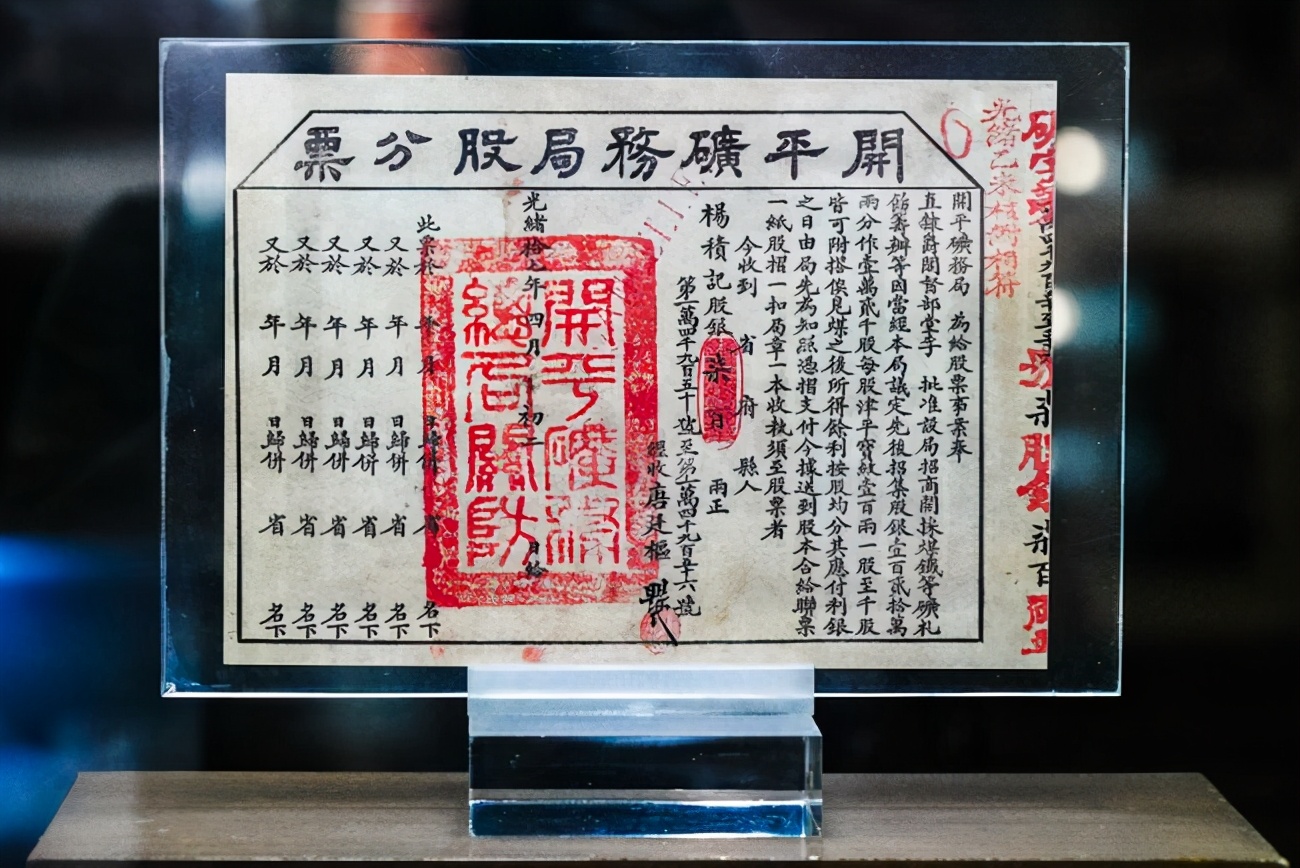 開平礦務局股分票
光緒乙未 核對相符
開平礦務局 為給股票事案奉
直隸爵閣督部堂李 批准設局招商開採煤鐵等礦札
飭籌辦等因當經本局議定先後招集股銀壹百貳拾萬
兩分作壹萬貳千股每股津平寶紋壹百兩一股至千股
皆可附搭俟見煤之後所得餘利按股均分其應付利銀
之日由局先為知照憑摺支付今據送到股本合給聯票
一紙股摺一扣局章一本收執須至股票者
今收到 省 府 縣人
楊積記股銀柒百 兩正
第一萬四千九百五十號至第一萬四千九百五十六號
經收唐廷樞
開平礦務
總局關防
光緒拾七年四月初二日給
此票於 年 月 日歸併 省 名下
又於 年 月 日歸併 省 名下
又於 年 月 日歸併 省 名下
又於 年 月 日歸併 省 名下
又於 年 月 日歸併 省 名下
又於 年 月 日歸併 省 名下